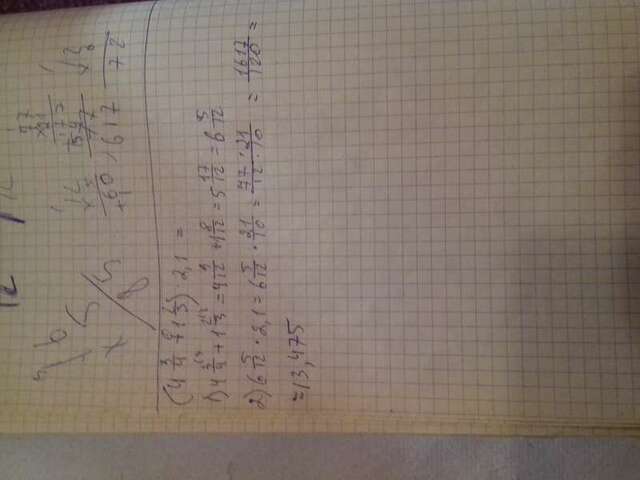 76
5
85
12
60
77
×21
177
154
1617
12
72
(4 3/4 + 1 2/3) · 2,1 =
1) 4 3/4 + 1 2/3 = 4 9/12 + 1 8/12 = 5 17/12 = 6 5/12
2) 6 5/12 · 2,1 = 6 5/12 · 21/10 = 77 · 21/12 · 10 = 1617/120 =
= 13,475